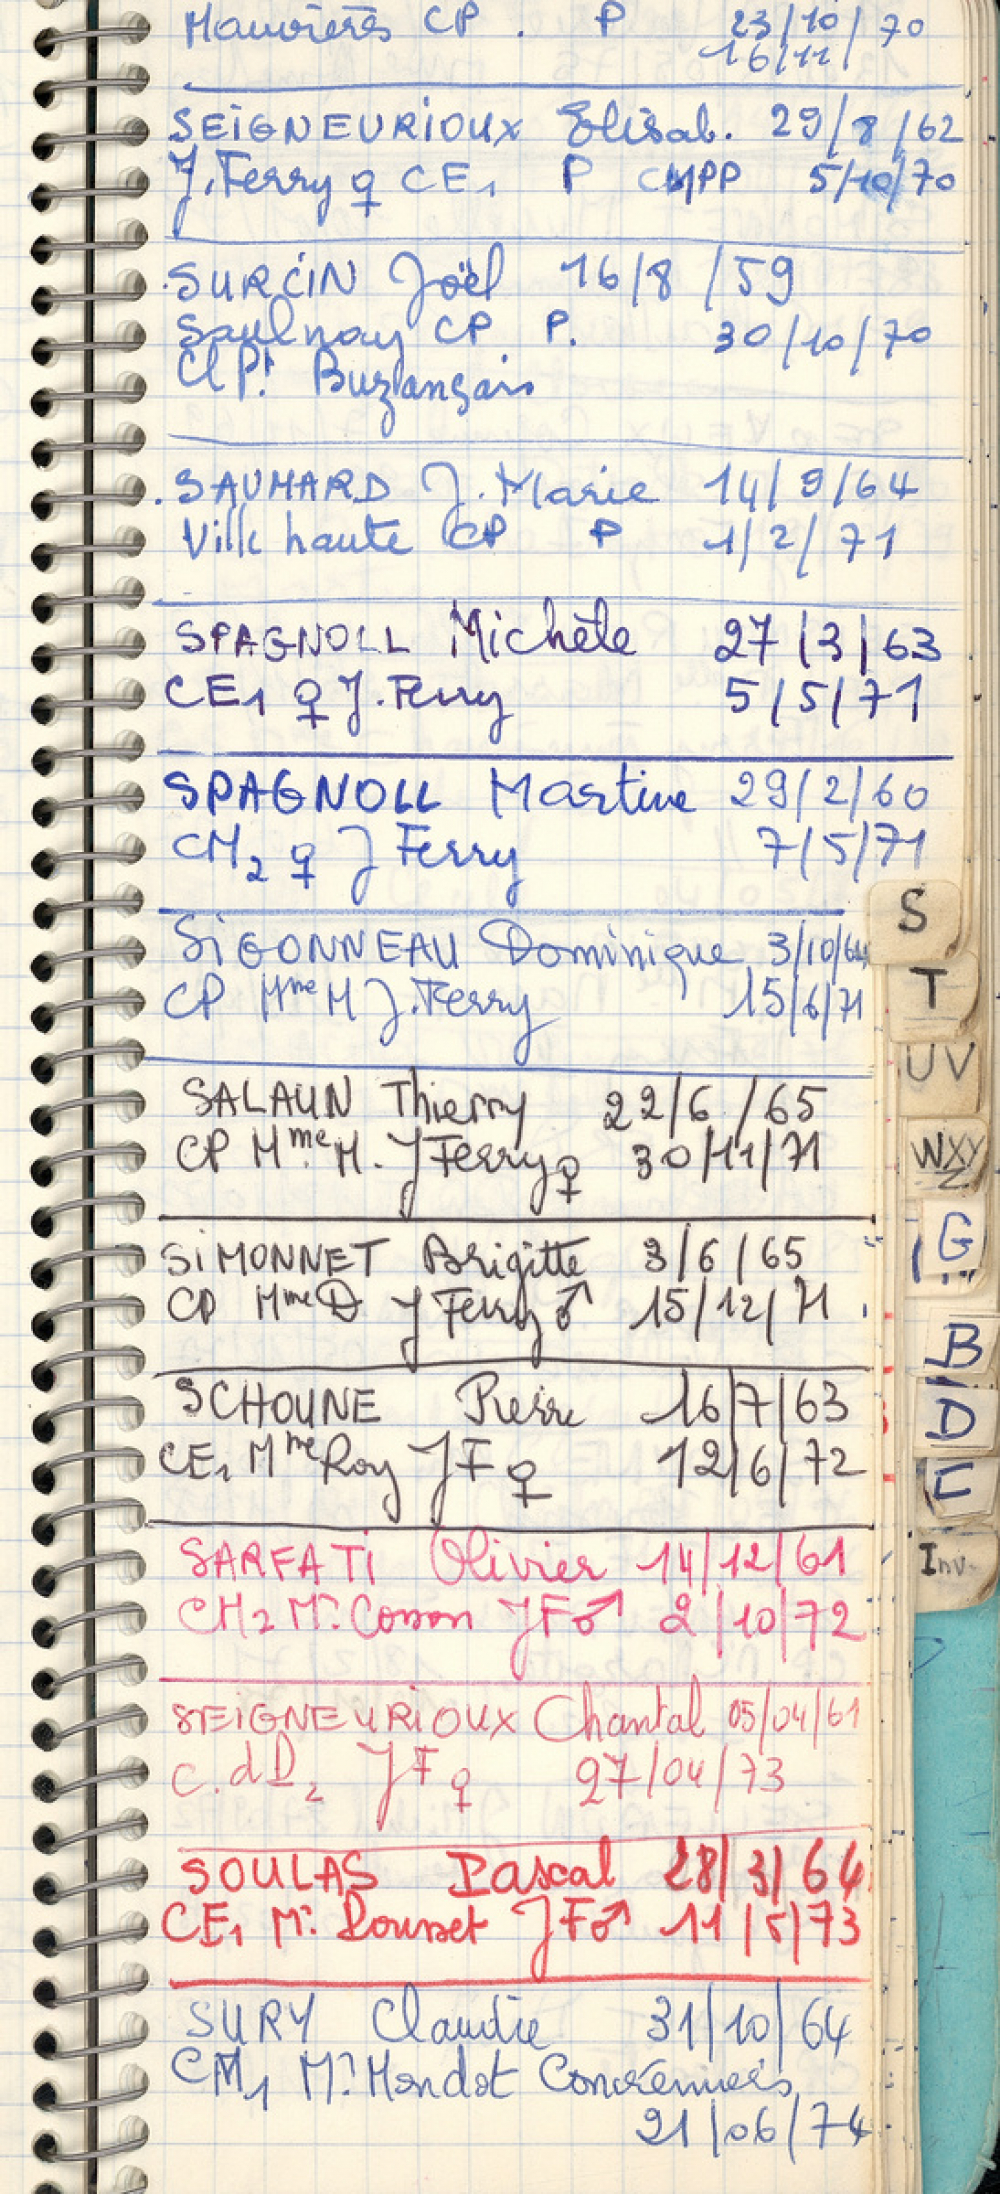 Mauvières CP . P 23/10/70
16/11/
SEiGNEURiOUX Elisab. 29/8/62
J. Ferry ♀ CE1 P CMPP 5/10/70
SURCiN Joël 16/8/59
Saulnay CP. P. 30/10/70
Cl P. Buzançais
SAUMARD J. Marie 14/9/64
Ville haute CP P 1/2/71
SPAGNOLL Michèle 27/3/63
CE1 ♀ J. Ferry 5/5/71
SPAGNOLL Martine 29/2/60
CM2 ♀ J Ferry 7/5/71
SiGONNEAU Dominique 3/10/64
CP Mme M J. Ferry 15/6/71
SALAUN Thierry 22/6/65
CP Mme M. J Ferry ♀ 30/11/71
SiMONNET Brigitte 3/6/65
CP Mme D J Ferry ♂ 15/12/71
SCHOUNE Pierre 16/7/63
CE1 Mme Roy JF ♀ 12/6/72
SARFATi Olivier 14/12/61
CM2 Mr. Cosson JF ♂ 2/10/72
SEiGNEURiOUX Chantal 05/04/61
C. d D2 JF ♀ 27/04/73
SOULAS Pascal 28/3/64
CE1 Mr. Rousset JF ♂ 11/5/73
SURY Claudie 31/10/64
CM1 Mr. Mondot Concremiers
21/06/74
S
T
UV
WXY
Z
G
B
D
C
Inv.